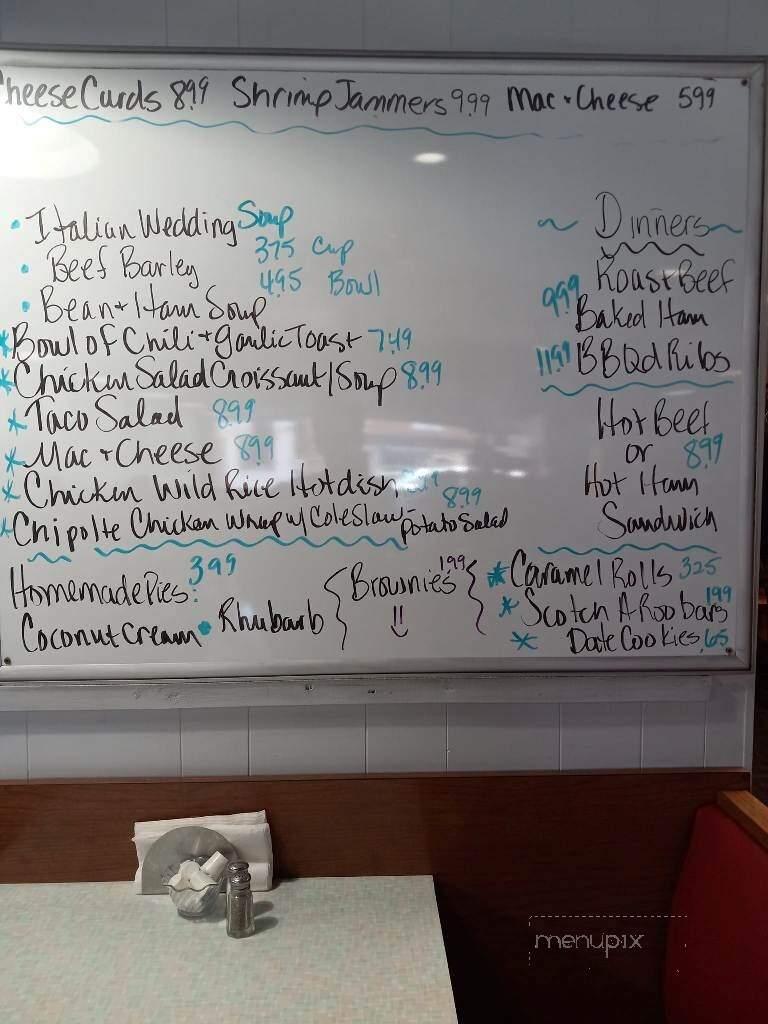 Cheese Curds 8.99 Shrimp Jammers 9.99 Mac + Cheese 5.99
• Italian Wedding Soup
• Beef Barley 3.75 Cup
4.95 Bowl
• Bean + Ham Soup
* Bowl of Chili + Garlic Toast 7.49
* Chicken Salad Croissant/Soup 8.99
* Taco Salad 8.99
* Mac + Cheese 8.99
* Chicken Wild Rice Hotdish
* Chipolte Chicken Wrap w/ Coleslaw - Potato Salad 8.99
~ Dinners ~
Roast Beef
9.99 Baked Ham
11.99 BBQd Ribs
Hot Beef
or 8.99
Hot Ham
Sandwich
Homemade Pies: 3.99
Coconut Cream • Rhubarb
Brownies 1.99
* Caramel Rolls 3.25
* Scotch A Roo bars 1.99
* Date Cookies .65
menupix